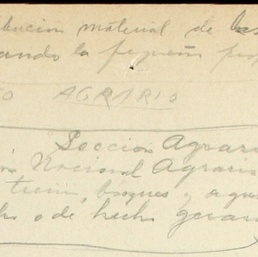 bucion material de las
ando la pequeña prop
O AGRARIO
Seccion Agrar
Nacional Agrari
bosques y agu
o de hecho